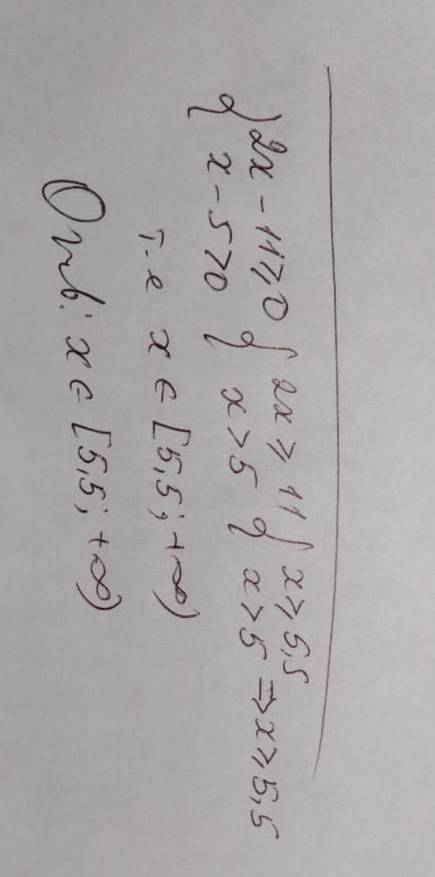 { 2x - 11 ⩾ 0 { 2x ⩾ 11 { x ⩾ 5,5
x - 5 > 0 x > 5 x > 5 ⇒ x ⩾ 5,5
т.е x ∈ [5,5; +∞)
Отв: x ∈ [5,5; +∞)